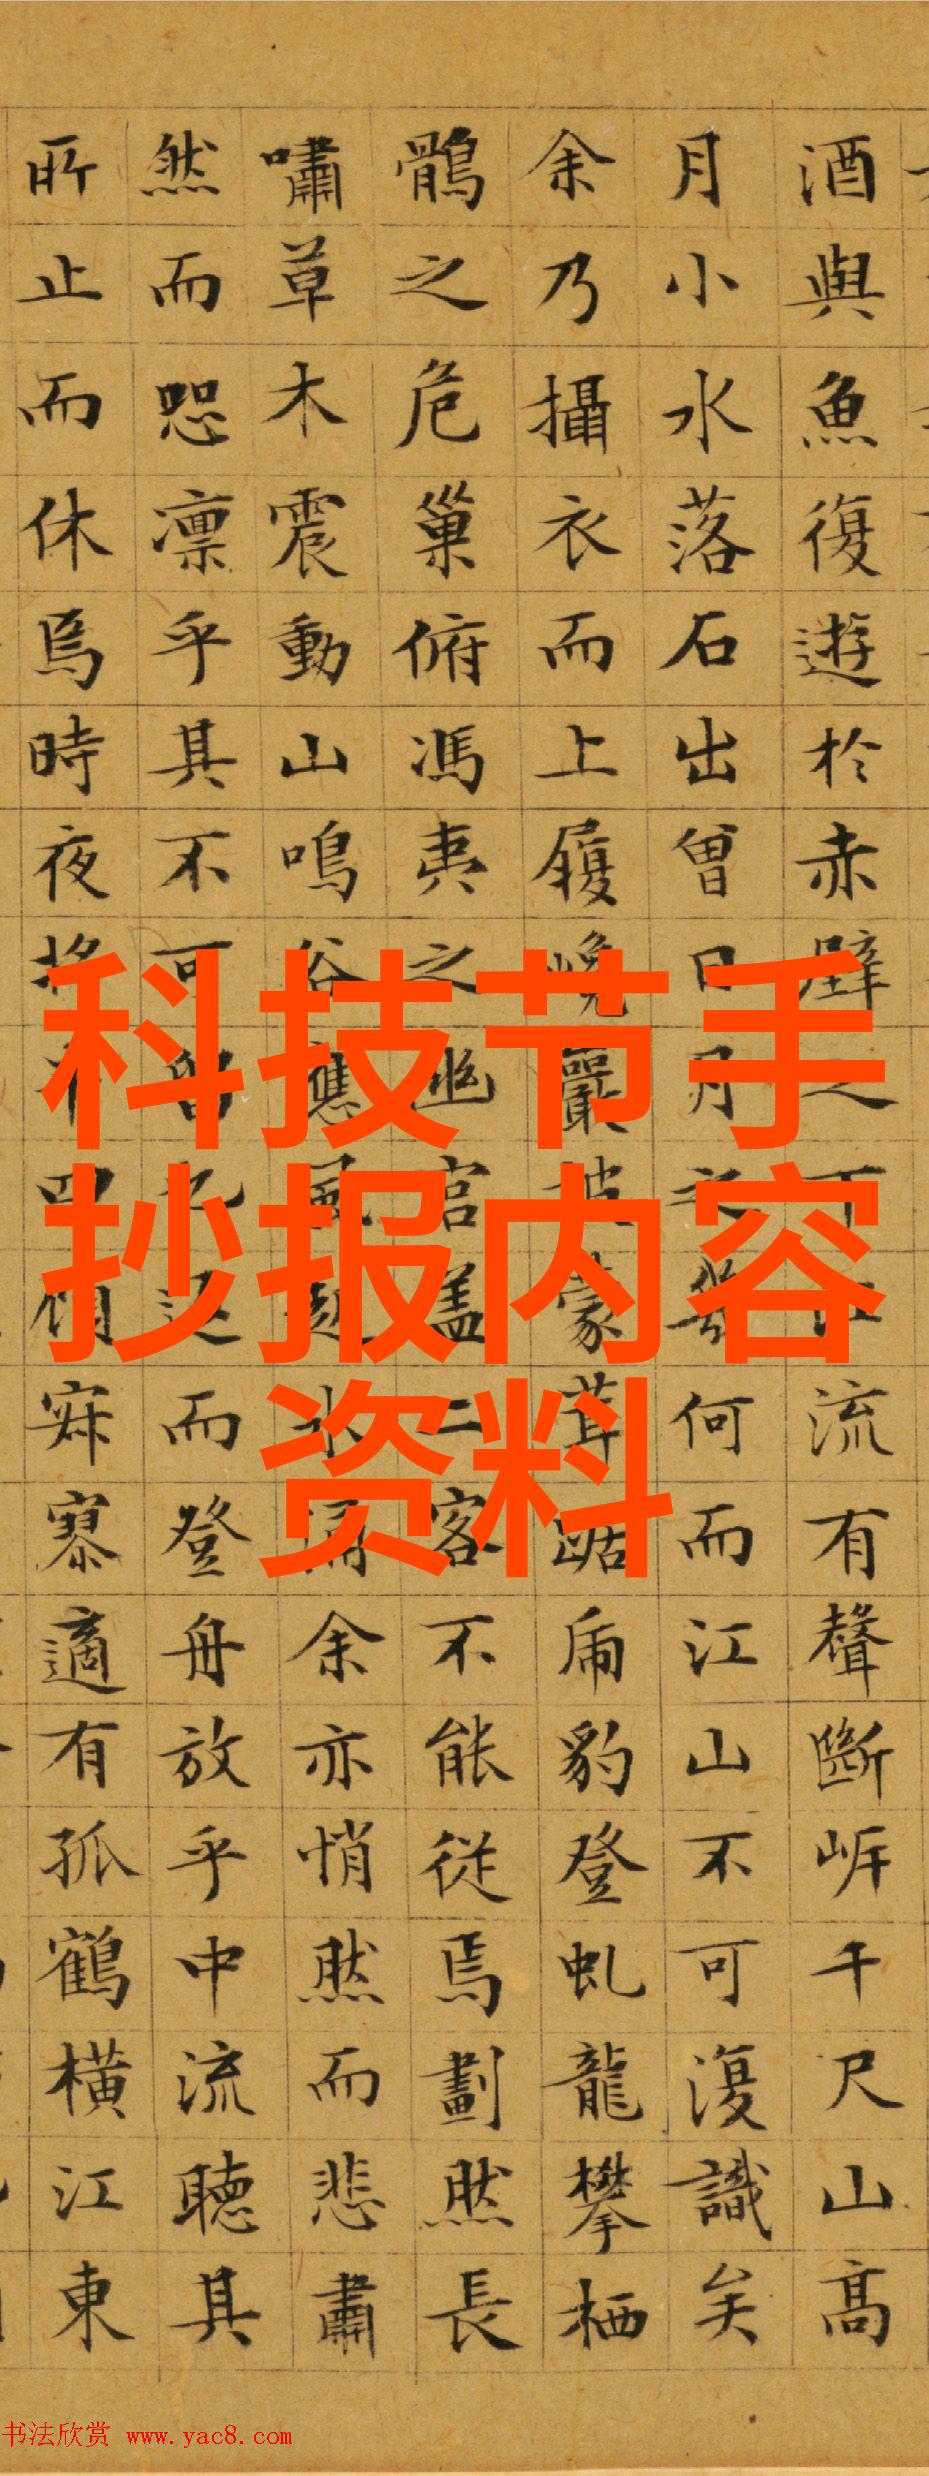 酒與魚復遊於赤壁之下江流有聲斷岸千尺山高
月小水落石出曾日月之幾何而江山不可復識矣
余乃攝衣而上履巉巖披蒙茸踞虎豹登虬龍攀栖
鶻之危巢俯馮夷之幽宫盖二客不能從焉劃然長
嘯草木震動山鳴谷應風起水涌余亦悄然而悲肅
然而恐凛乎其不可留也返而登舟放乎中流聽其
所止而休焉時夜将半四顧寂寥適有孤鶴横江東
科技节手
抄报内容
资料
书法欣赏 www.yac8.com